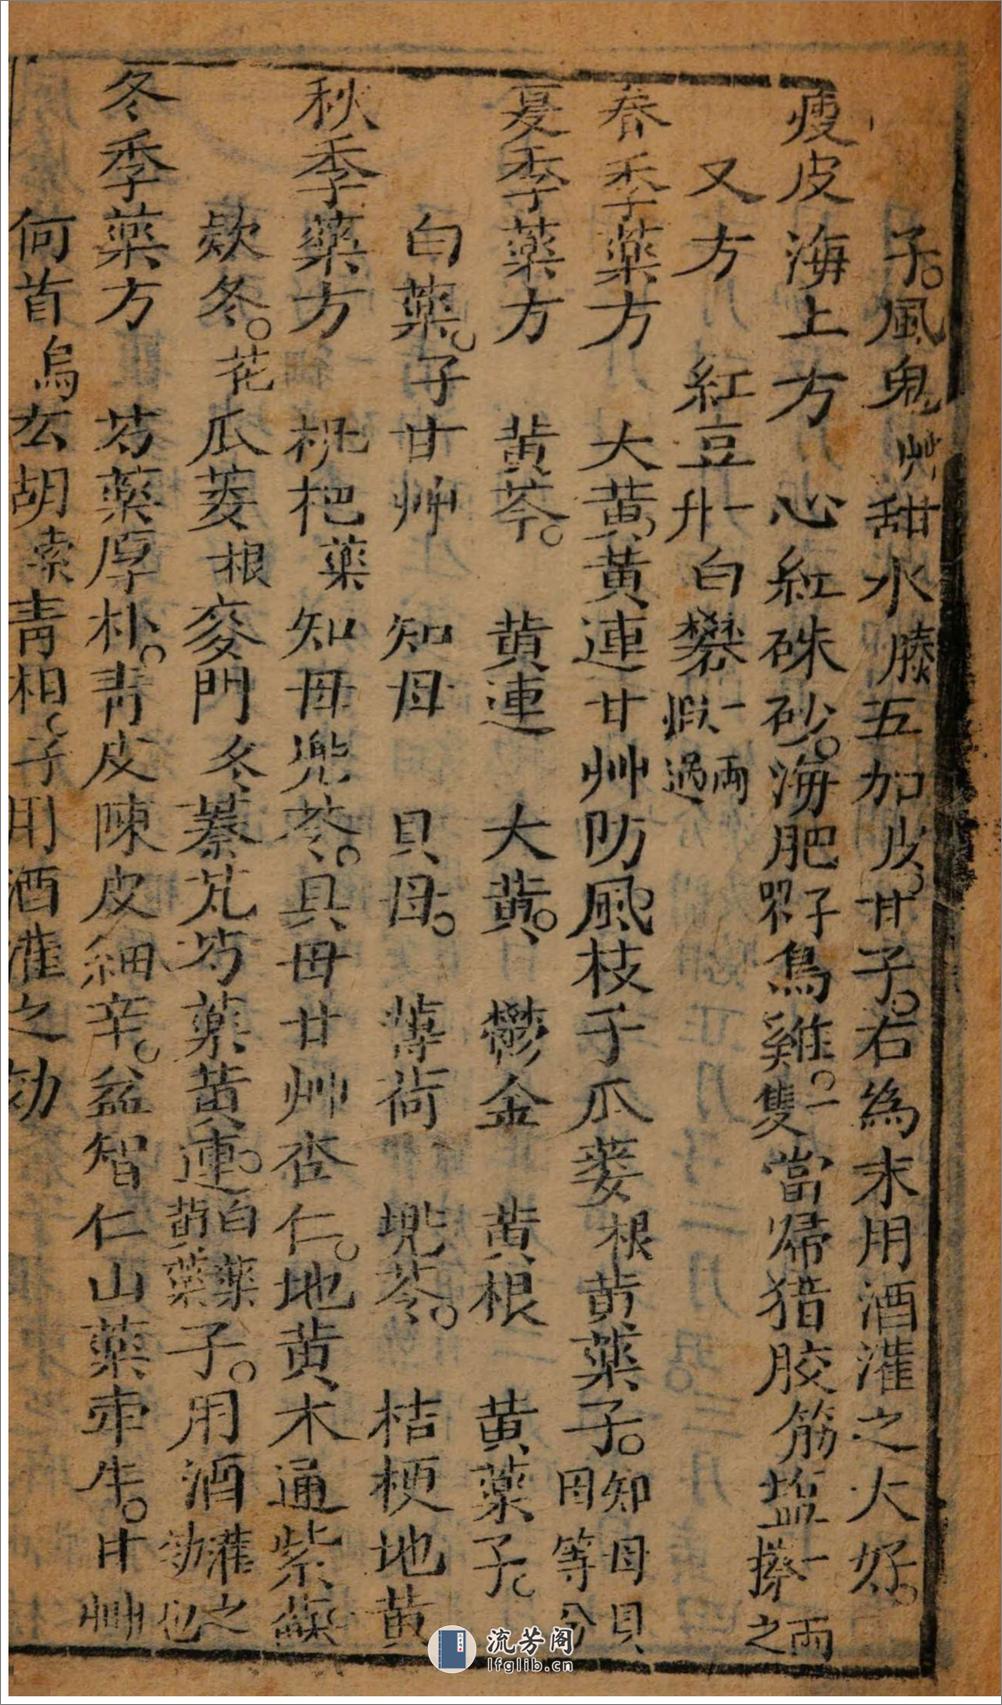 子風鬼艸甜水䕨五加皮甘子右為末用酒灌之大好
瘦皮海上方　心紅硃砂海肥子烏雞一隻當歸猎胶筋塩一兩搽之
又方　紅豆一升白礬一兩煆過
春季藥方　大黄黄連甘艸防風枝子瓜蒌根黄藥子知母貝母等分
夏季藥方　黄芩　黄連　大黄　鬱金　黄根　黄藥子
白藥子甘艸　知母　貝母　薄荷　兜苓　桔梗地黄
秋季藥方　枇杷葉知母兜苓貝母甘艸杏仁地黄木通紫蘇
欵冬花瓜蒌根麥門冬蓁芃芍藥黄連白藥黄藥子用酒灌之効也
冬季藥方　芍藥厚朴青皮陳皮細辛益智仁山藥牽牛甘艸
何首烏玄胡索青相子用酒灌之効
流芳阁
lfglib.cn